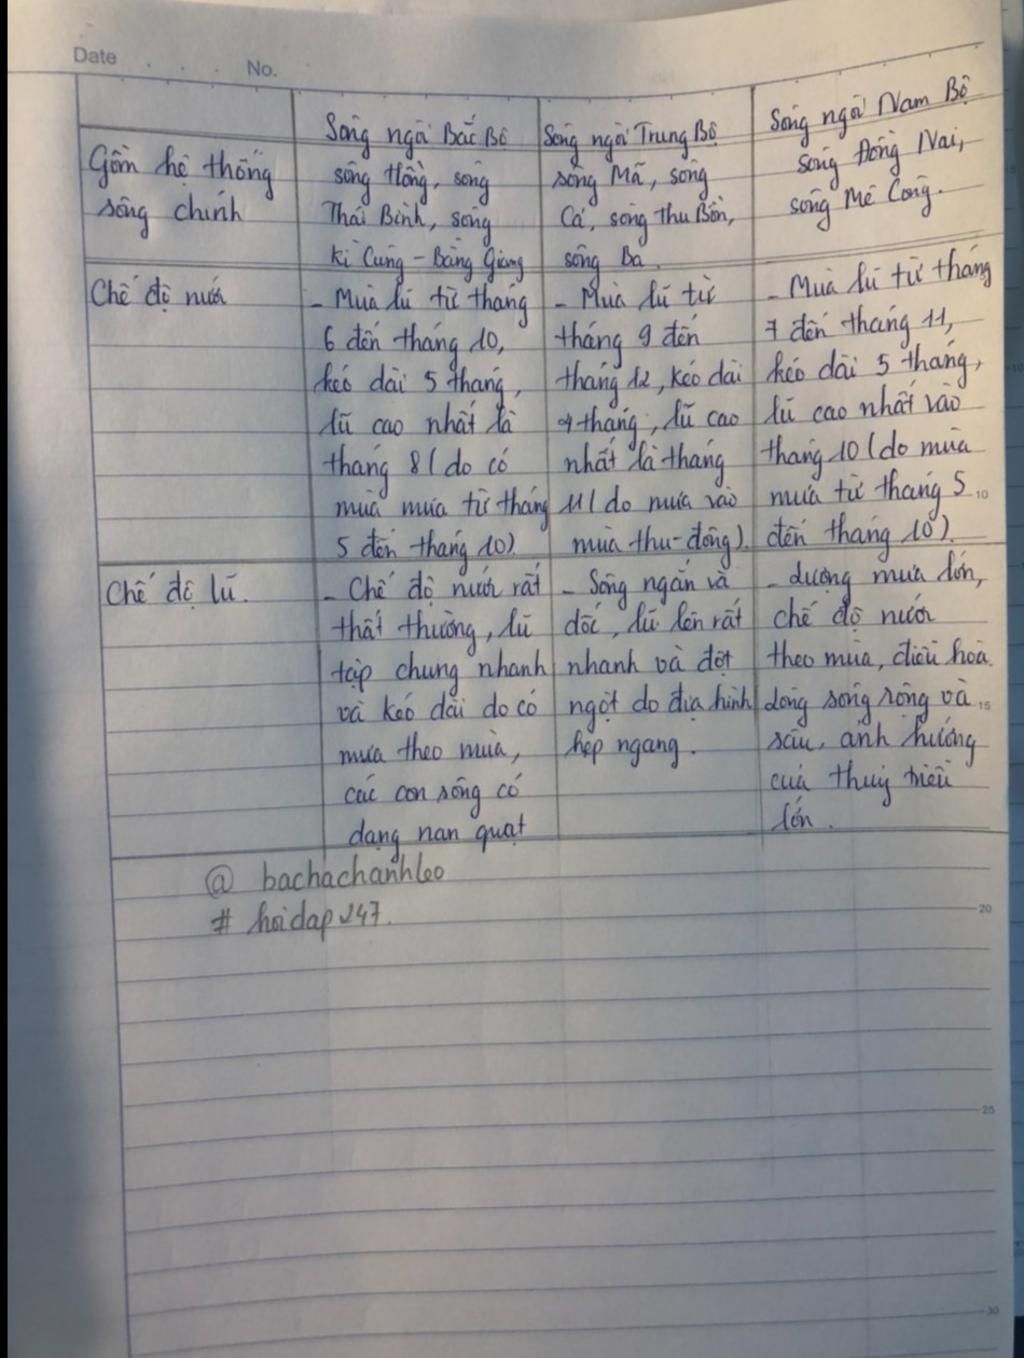 Date . . . . No.
Sông ngòi Bắc Bộ
Sông ngòi Trung Bộ
Sông ngòi Nam Bộ
Gồm hệ thống
sông chính
sông Hồng, sông
Thái Bình, sông
kì Cùng - Bằng Giang
sông Mã, sông
Cả, sông thu Bồn,
sông Ba.
sông Đồng Nai,
sông Mê Công.
Chế độ nước
- Mùa lũ từ tháng
6 đến tháng 10,
kéo dài 5 tháng,
lũ cao nhất là
tháng 8 ( do có
mùa mưa từ tháng
5 đến tháng 10)
- Mùa lũ từ
tháng 9 đến
tháng 12, kéo dài
4 tháng, lũ cao
nhất là tháng
11 ( do mưa vào
mùa thu-đông).
- Mùa lũ từ tháng
7 đến tháng 11,
kéo dài 5 tháng,
lũ cao nhất vào
tháng 10 ( do mùa
mưa từ tháng 5
đến tháng 10).
Chế độ lũ.
- Chế độ nước rất
thất thường, lũ
tập chung nhanh
và kéo dài do có
mưa theo mùa,
các con sông có
dạng nan quạt
- Sông ngắn và
dốc, lũ lên rất
nhanh và đột
ngột do địa hình
hẹp ngang.
- dượng mưa lớn,
chế độ nước
theo mùa, điều hoà.
dòng sông rộng và
sâu, ảnh hưởng
của thuỷ triều
lớn.
@ bachachanhleo
# hoidap247.
10
15
20
25
30